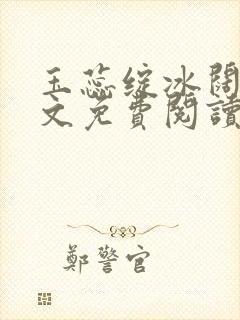 玉蕊綻冰闊
文免費閱讀
鄭警官